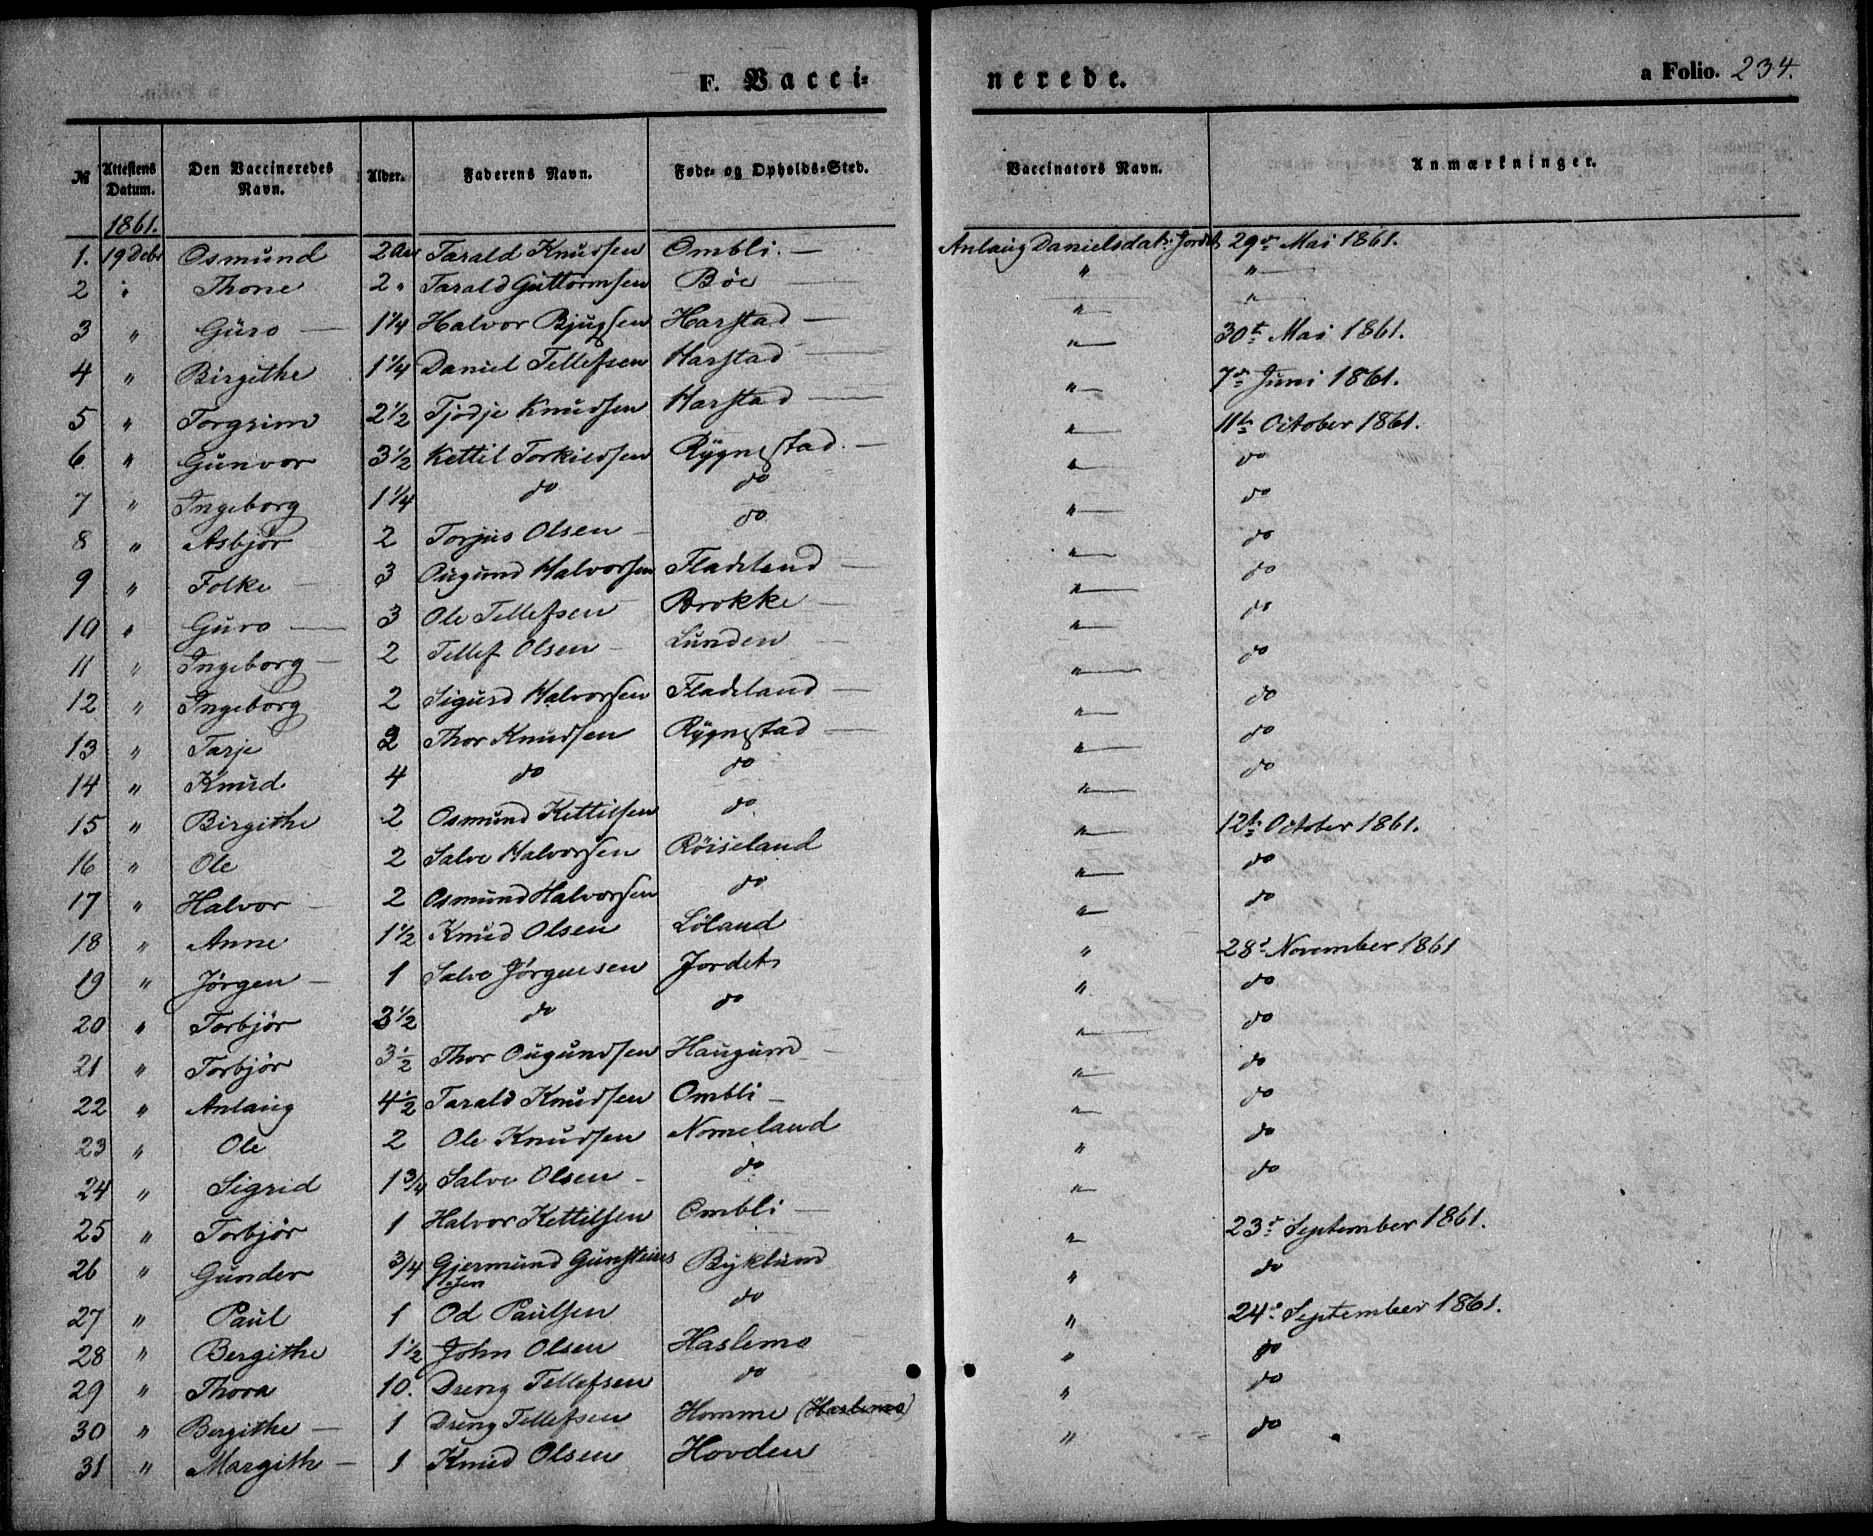 F. Vacci- nerede. a Folio. 234.
№ Attestens Datum. Den Vaccineredes Navn. Alder. Faderens Navn. Føde- og Opholds-Sted. Vaccinators Navn. Anmærkninger.
1861.
1. 19 Debr Osmund 2 Aar Tarald Knudsen Ombli. — Anlaug Danielsdatr Jordet 29de Mai 1861.
2 " Thone 2 " Tarald Guttormsen Bøe — " "
3 " Guro — 1 1/4 Halvor Bjugsen Harstad — " "
4 " Birgithe 1 1/4 Daniel Tellefsen Harstad — " 30te Mai 1861.
5 " Torgrim 2 1/2 Tjodje Knudsen Harstad — " 7de Juni 1861.
6 " Gunvor 3 1/2 Kettil Torkildsen Rygnestad — " 11te October 1861.
7 " Ingeborg 1 1/4 do do " do
8 " Asbjør 2 Torjus Olsen — do " do
9 " Folke — 3 Ougund Halvorsen Fladeland — " do
10 " Guro — 3 Ole Tellefsen — Brokke — " do
11 " Ingeborg — 2 Tellef Olsen — Lunden — " do
12 " Ingeborg 2 Sigurd Halvorsen Fladeland — " do
13 " Tarje 2 Thor Knudsen Rygnestad — " do
14 " Knud 4 do do " do
15 " Birgithe 2 Osmund Kettilsen do " do
16 " Ole 2 Salve Halvorsen Røiseland " 12te October 1861.
17 " Halvor — 2 Osmund Halvorsen do " do
18 " Anne 1 1/2 Knud Olsen Løland " do
19 " Jørgen — 1 Salve Jørgensen Jordet " 28de November 1861
20 " Torbjør 3 1/2 do do " do
21 " Torbjør 3 1/2 Thor Ougundsen Haugum — " do
22 " Anlaug 4 1/2 Tarald Knudsen Ombli — " do
23 " Ole 2 Ole Knudsen Nomeland " do
24 " Sigrid 1 3/4 Salve Olsen — do " do
25 " Torbjør 1 Halvor Kettilsen Ombli — " do
26 " Gunder 3/4 Gjermund Gunsteins Byklum " 23de September 1861.
sen
27 " Paul 1 Od Paulsen do " do
28 " Bergithe 1 1/2 John Olsen Haslemo " 24de September 1861.
29 " Thora 10. Dreng Tellefsen do " do
30 " Bergithe — 1 Dreng Tellefsen Homme (Haslemo) " do
31 " Margithe — 1 Knud Olsen Hovden " do